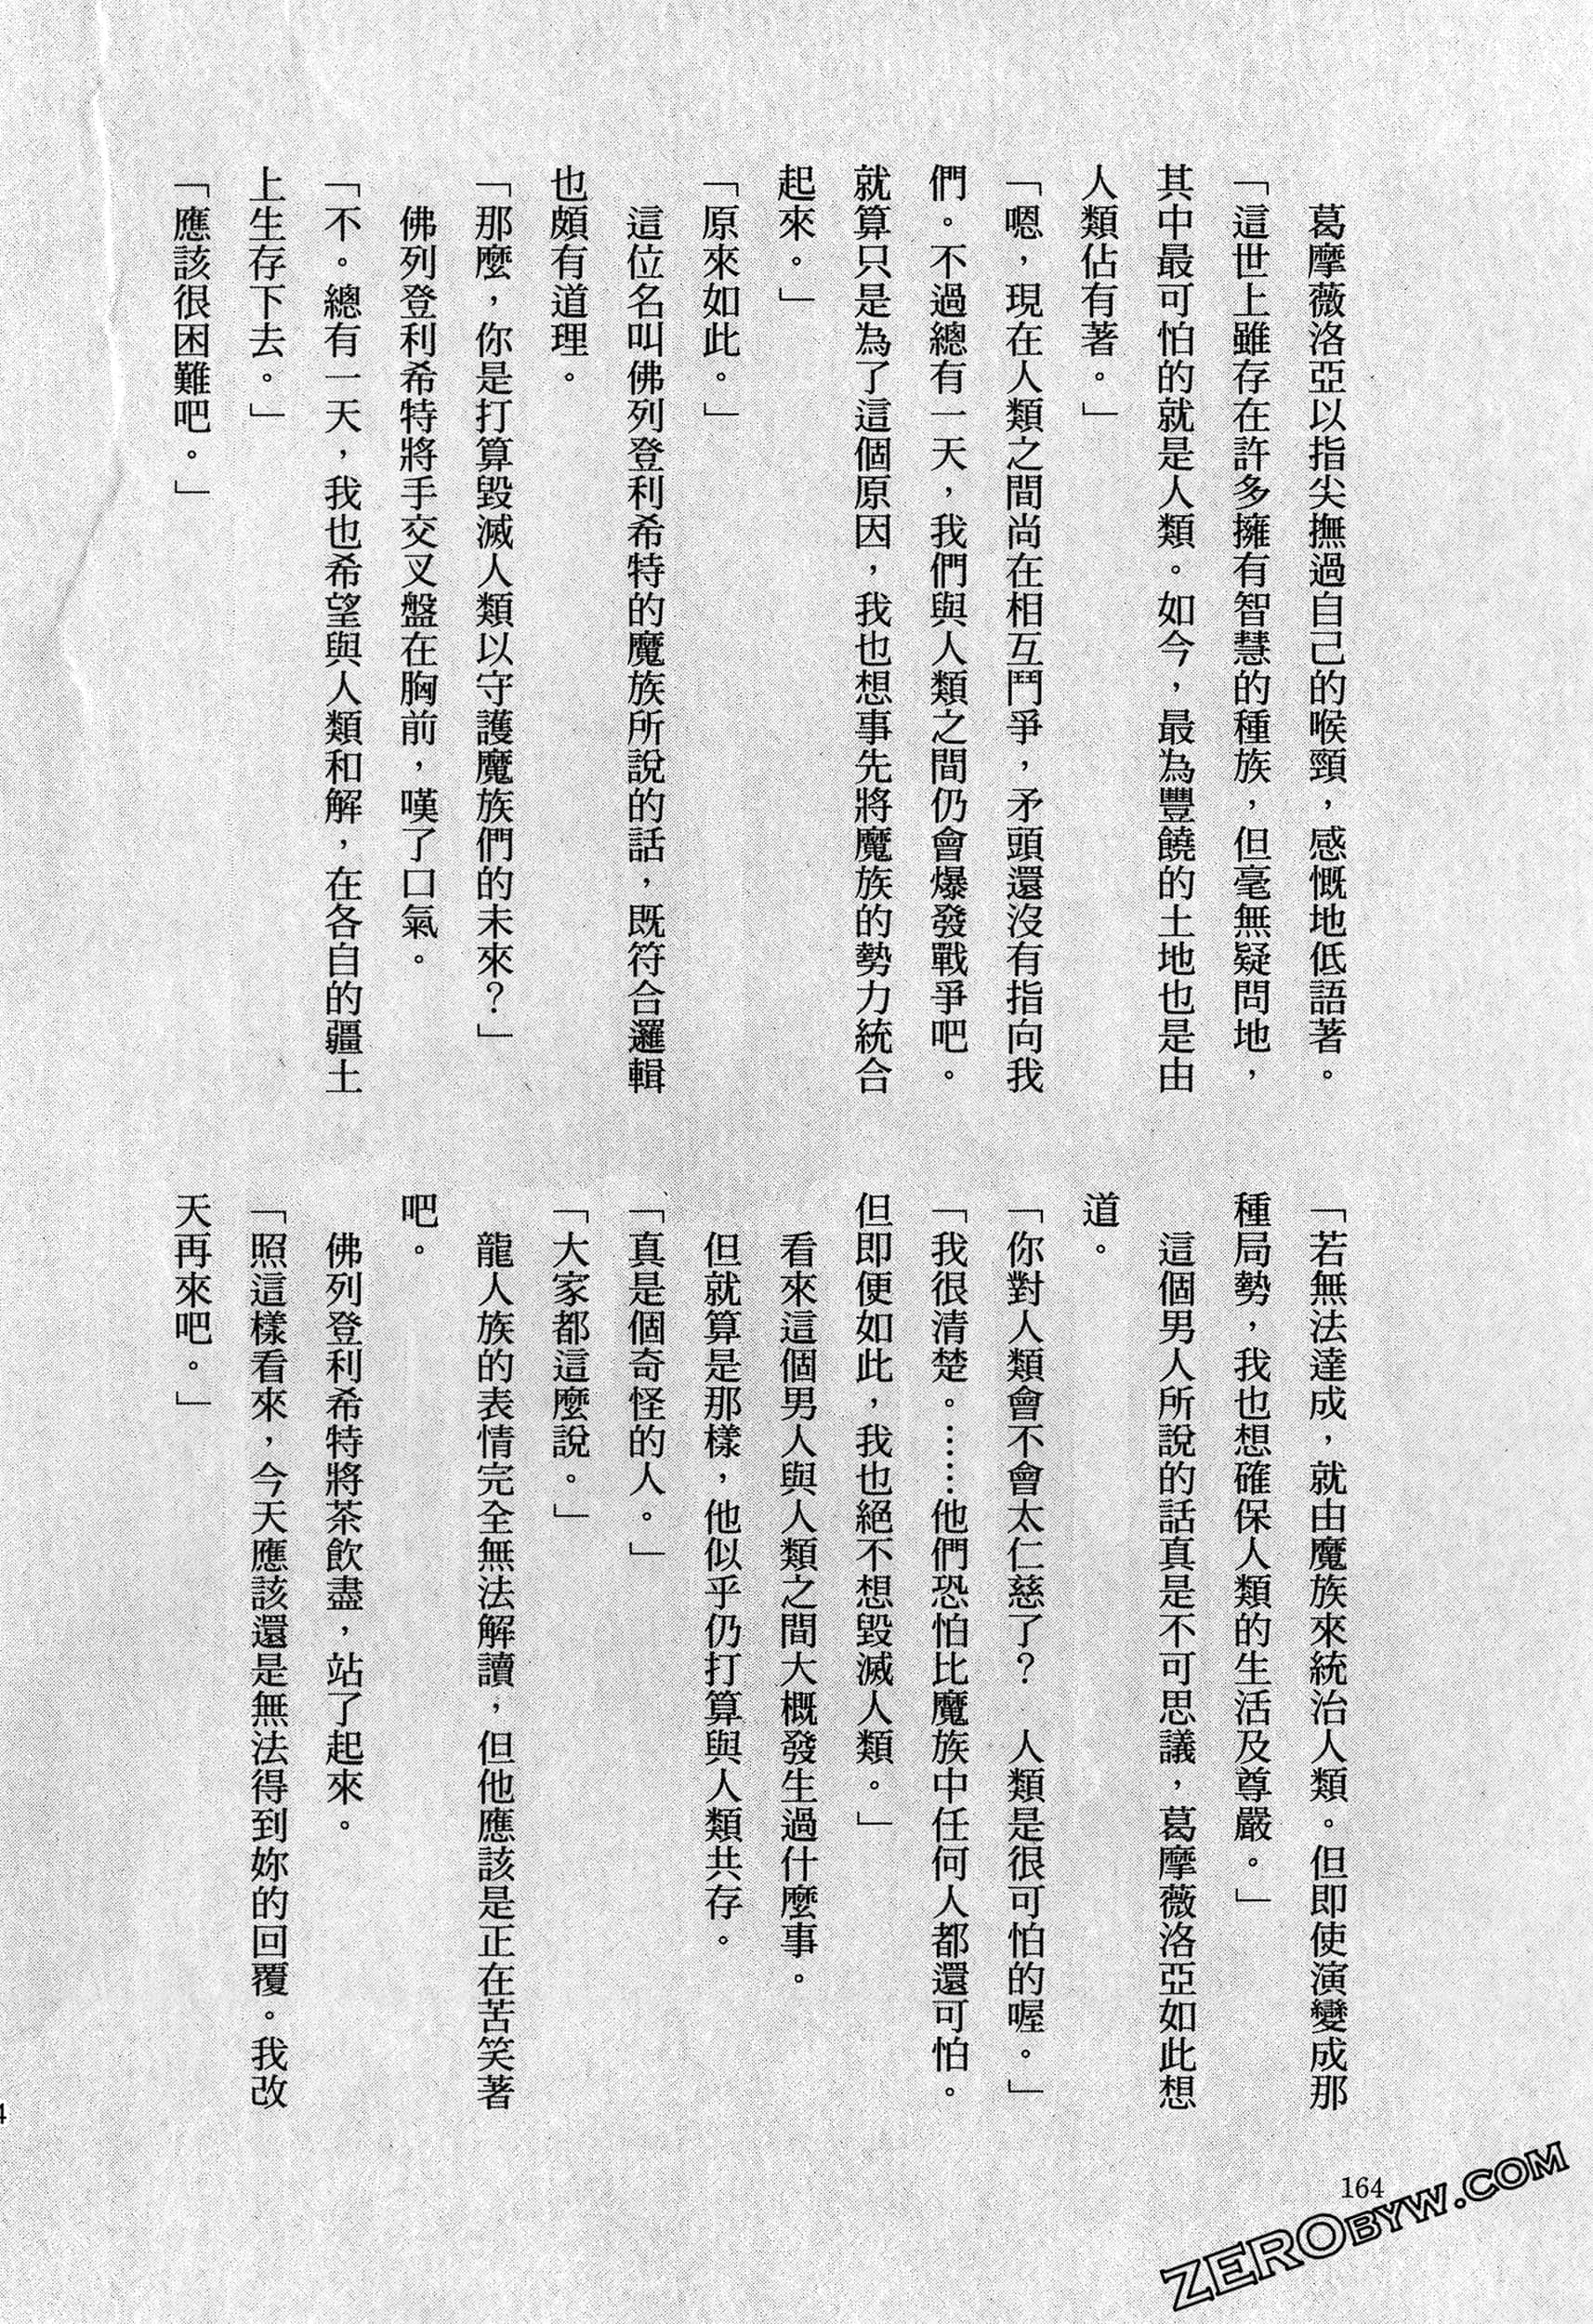 葛摩薇洛亞以指尖撫過自己的喉頸，感慨地低語著。
「這世上雖存在許多擁有智慧的種族，但毫無疑問地，
其中最可怕的就是人類。如今，最為豐饒的土地也是由
人類佔有著。」
「嗯，現在人類之間尚在相互鬥爭，矛頭還沒有指向我
們。不過總有一天，我們與人類之間仍會爆發戰爭吧。
就算只是為了這個原因，我也想事先將魔族的勢力統合
起來。」
「原來如此。」
這位名叫佛列登利希特的魔族所說的話，既符合邏輯
也頗有道理。
「那麼，你是打算毀滅人類以守護魔族們的未來？」
佛列登利希特將手交叉盤在胸前，嘆了口氣。
「不。總有一天，我也希望與人類和解，在各自的疆土
上生存下去。」
「應該很困難吧。」
「若無法達成，就由魔族來統治人類。但即使演變成那
種局勢，我也想確保人類的生活及尊嚴。」
這個男人所說的話真是不可思議，葛摩薇洛亞如此想
道。
「你對人類會不會太仁慈了？　人類是很可怕的喔。」
「我很清楚。……他們恐怕比魔族中任何人都還可怕。
但即便如此，我也絕不想毀滅人類。」
看來這個男人與人類之間大概發生過什麼事。
但就算是那樣，他似乎仍打算與人類共存。
「真是個奇怪的人。」
「大家都這麼說。」
龍人族的表情完全無法解讀，但他應該是正在苦笑著
吧。
佛列登利希特將茶飲盡，站了起來。
「照這樣看來，今天應該還是無法得到妳的回覆。我改
天再來吧。」
164
ZEROBYW.COM